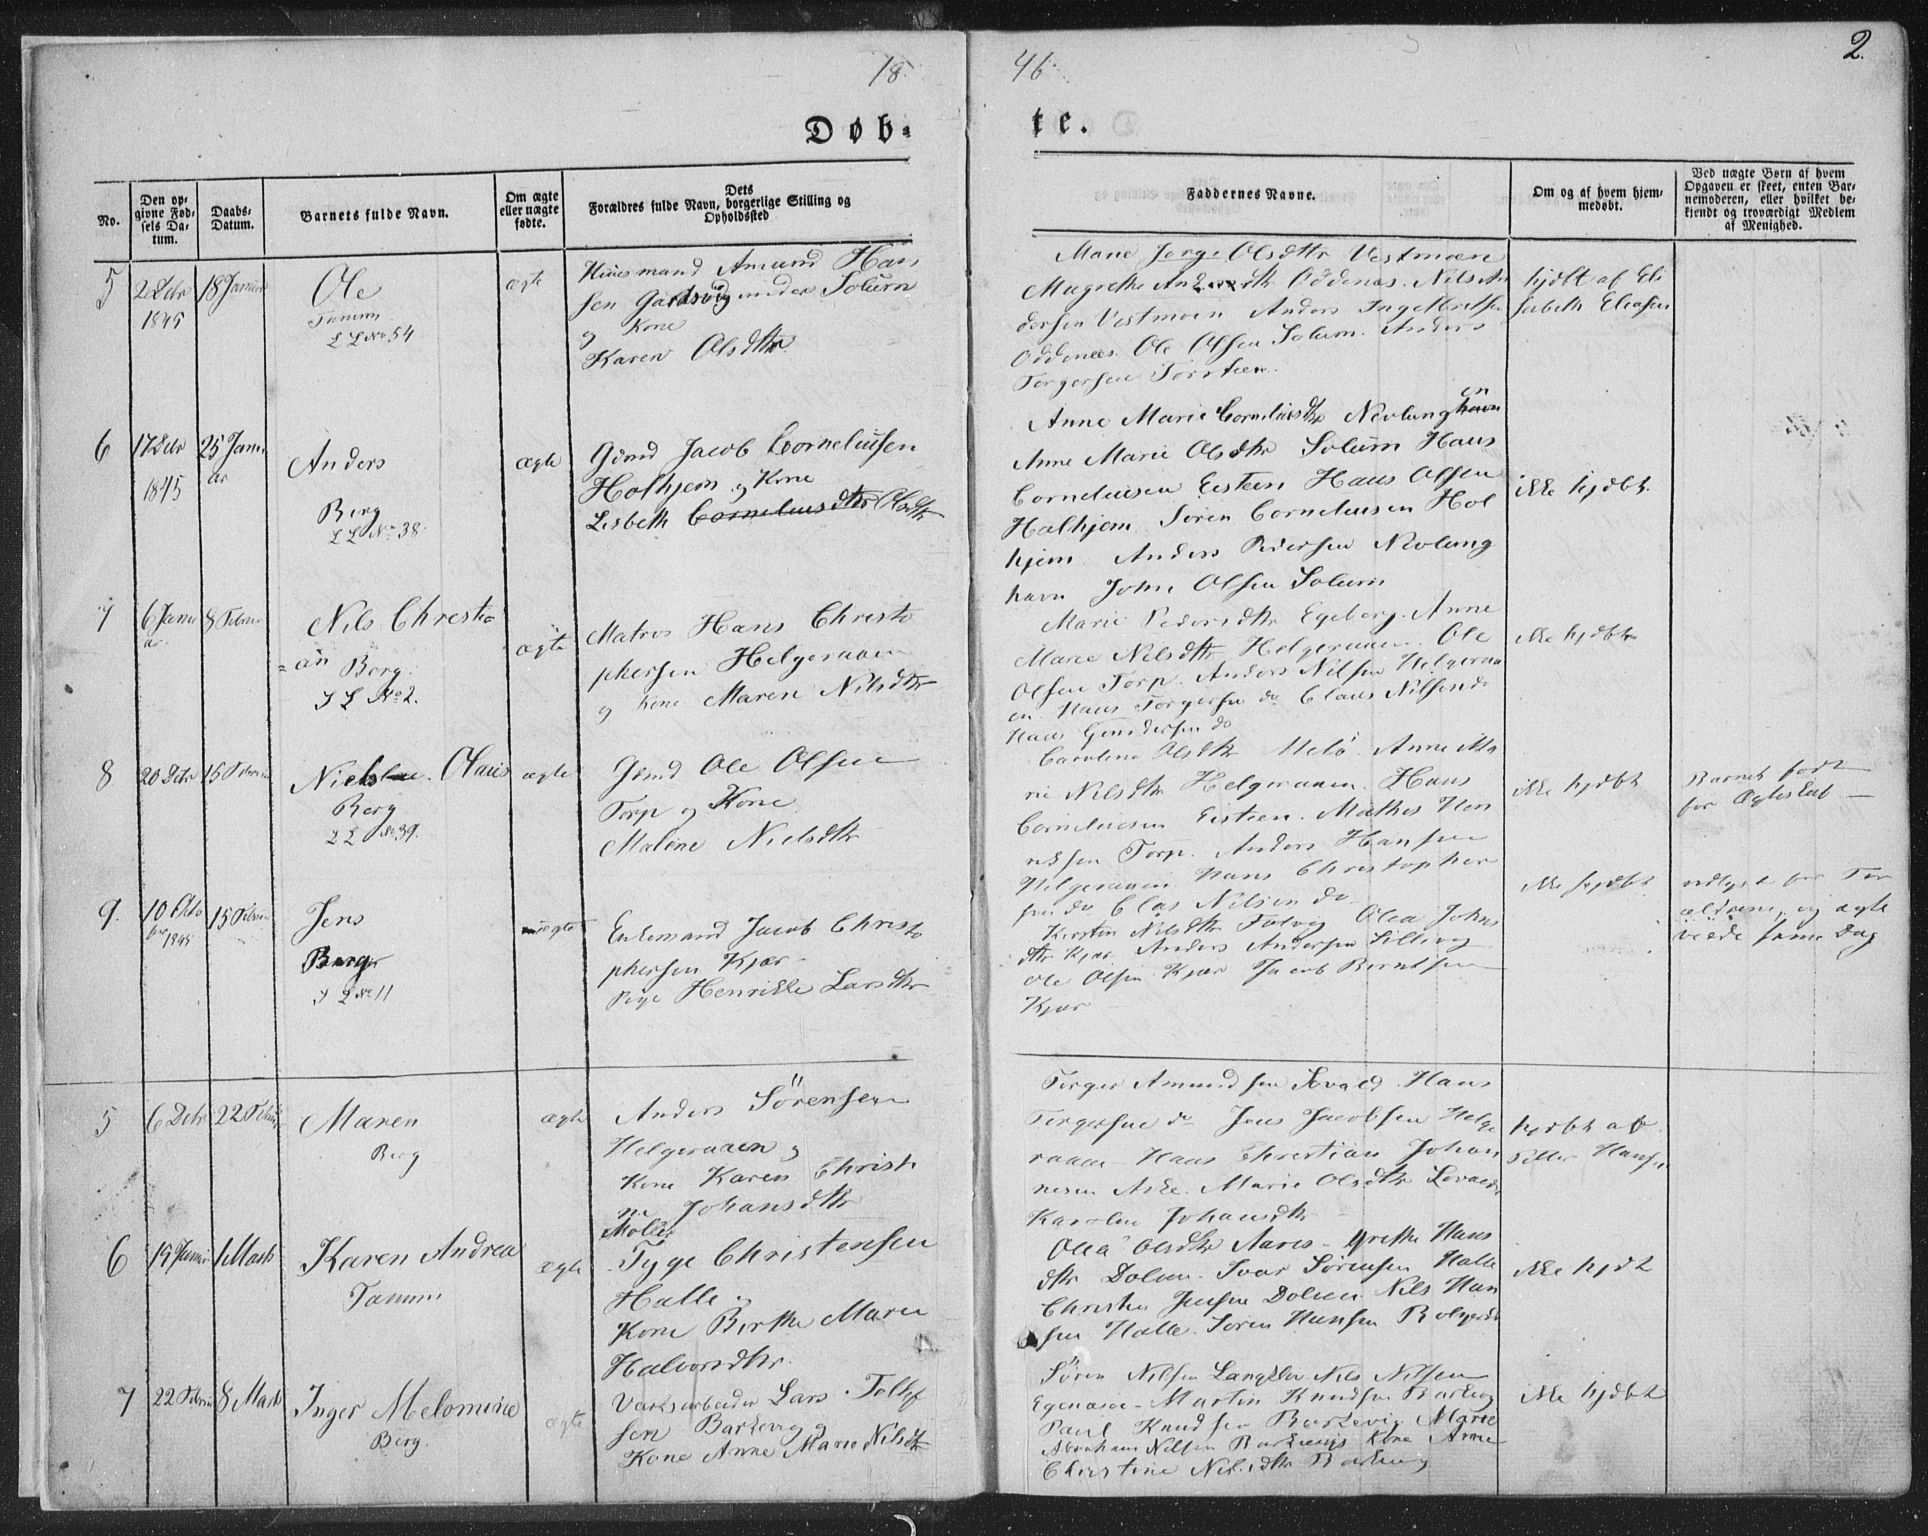 18
46
2.
Døb-
te.
No.
Den op-
givne Fød-
sels Da-
tum.
Daabs-
Datum.
Barnets fulde Navn.
Om ægte
eller uægte
fødte.
Dets
Forældres fulde Navn, borgerlige Stilling og
Opholdssted
Faddernes Navne.
Om og af hvem hjem-
medøbt.
Ved uægte Børn af hvem
Opgaven er skeet, enten Bar-
nemoderen, eller hvilket be-
kjendt og troværdigt Medlem
af Menighed.
5
2 Decbr
1845
18 Januar
Ole
Tanum
L L No 54
ægte
Huusmand Amund Han
sen Gardsvig under Solum
og Kone
Karen Olsdtr
Marie Jorge Olsdtr Vestmoen
Magrethe Andersdtr Oddenæs. Nils An
dersen Vestmoen Anders Ingelbretsen
Oddenæs. Ole Olsen Solum. Anders
Torgersen
hjdbt af Eli
sabeth Eliasen
6
17 Decbr
1845
25 Janu
ar
Anders
Berg
L L No 38.
ægte
Gdmd Jacob Corneliusen
Holhjem og Kone
Lisbeth Corneliusdtr Olsdtr
Anne Marie Corneliusdtr Nevlunghavn
Anne Marie Olsdtr Solum Hans
Corneliusen Eisteen Hans Olsen
Halhjem Søren Corneliusen Hol
hjem Anders Pedersen Nevlung
havn John Olsen Solum
ikke hjdbt.
7
6 Janu
ar
8 Febru
Nils Christi
= an
Berg.
I L No 2.
ægte
Matros Hans Christo
phersen Helgeraaen
og Kone Maren Nilsdtr
Marie Pedersdtr Egeberg. Anne
Marie Nilsdtr Helgeraaen. Ole
Olsen Torp. Anders Nilsen Helgeraa
en. Hans Torgersen do Claus Nilsen do
Hans Gundersen do
ikke hjdbt
8
20 Debr
15 Februar
Niels Olaus
Berg
L L No 39.
ægte
Gdmd Ole Olsen
Torp og Kone
Malene Nielsdtr
Caroline Olsdtr Melø. Anne Ma
rie Nilsdtr Helgeraaen. Hans
Corneliusen Eisteen. Mathis Hen
riksen Torp. Anders Hansen
Helgeraaen Hans Christopher
sen do Clas Nilsen do
ikke hjdbt
Barnet født
før Ægteskab
9.
10 Octo
ber 1845
15 Februar
Jens
Berg
I L No 11
uægte
Enkemand Jacob Christo
phersen Kjær
Pige Henrikke Larsdtr
Kirsten Nilsdtr Foldvig Olea Johns
dtr Kjær Anders Andersen Sillivig
Ole Olsen Kjær Jacob Berntsen
Kjær
ikke hjdbt
udlagt for For
ældrene, og ægte
viede same Dag
5
6 Debr
22 Februar
Maren
Berg
ægte
Anders Sörensen
Helgeraaen og
Kone Karen Christi
ne Johansdtr
Torger Amundsen Lovald Hans
Torgersen do Jens Jacobsen Helge
raaen Hans Christian Johan
nesen Aske. Marie Olsdtr Lovald
Karoline Johansdtr
hjdbt af
Petter Hansen
6
19 Januar
1 Marts
Karen Andrea
Tanum
ægte
Møller
Tyge Christensen
Halle og
Kone Birthe Marie
Halvorsdtr.
Olea Olsdtr Aaros - Grethe Hans
dtr Dolven. Ivar Sørensen Halle
Christen Jensen Dolven Nils Han
sen Halle. Søren Hansen
ikke hjdt
7
22 Februar
8 Marts
Inger Melomine
Berg.
ægte
Værksarbeider Lars Tollef
sen Barkevig og
Kone Anne Marie Nilsdtr
Sören Nilsen Nils Nilsen
Martin Knudsen Barkevig
Paul Knudsen Barkevig. Marie
Abraham Nilsen Barkevigs Kone Anne
Christine Nilsdtr Barkevig
ikke hjdbt